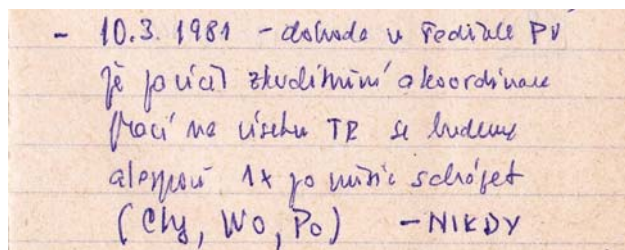 - 10.3. 1981 - dohoda u ředitele PV
že za účel zkvalitnění a koordinace
prací na úseku TR se budeme
alespoň 1x po měsíc scházet
(Chy, Wo, Po) - NIKDY